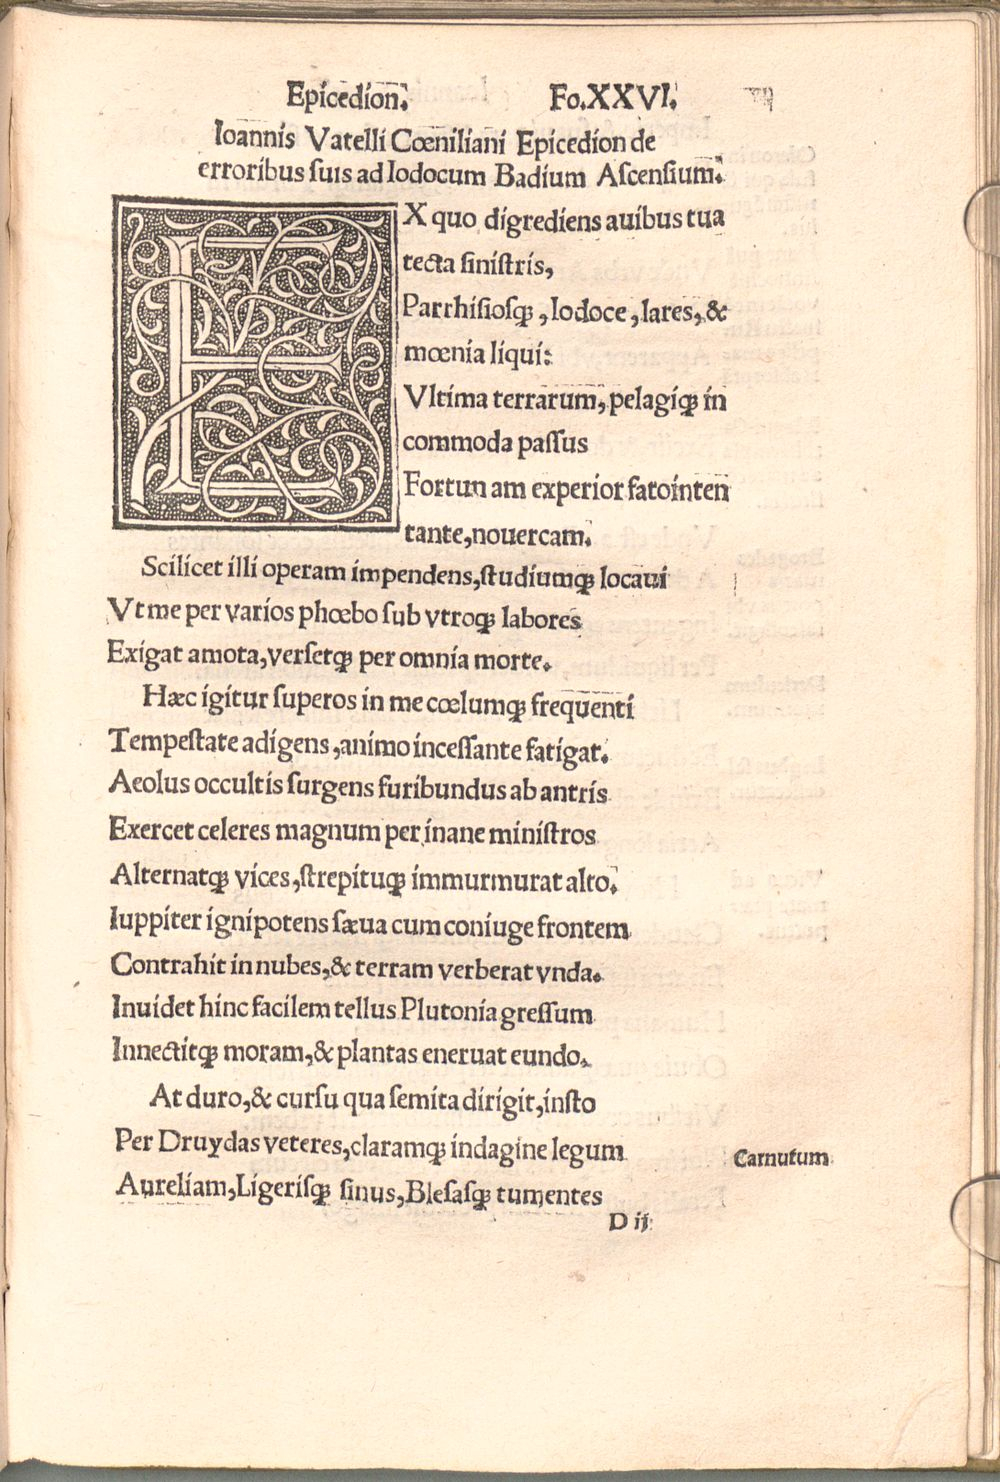 Epicedion. Fo.XXVI.
Ioannis Vatelli Cœniliani Epicedion de
erroribus suis ad Iodocum Badium Ascensium.
EX quo digrediens auibus tua
tecta sinistris,
Parrhisiosq;, Iodoce, lares, &
mœnia liqui:
Vltima terrarum, pelagiq; in
commoda passus
Fortunam experior fato inten
tante, nouercam.
Scilicet illi operam impendens, studiumq; locaui
Vt me per varios phœbo sub vtroq; labores
Exigat amota, versetq; per omnia morte.
Hæc igitur superos in me cœlumq; frequenti
Tempestate adigens, animo incessante fatigat.
Aeolus occultis surgens furibundus ab antris
Exercet celeres magnum per inane ministros
Alternatq; vices, strepituq; immurmurat alto.
Iuppiter ignipotens sæua cum coniuge frontem
Contrahit in nubes, & terram verberat vnda.
Inuidet hinc facilem tellus Plutonia gressum
Innectitq; moram, & plantas eneruat eundo.
At duro, & cursu qua semita dirigit, insto
Per Druydas veteres, claramq; indagine legum
Carnutum
Aureliam, Ligerisq; sinus, Blesasq; tumentes
D ii